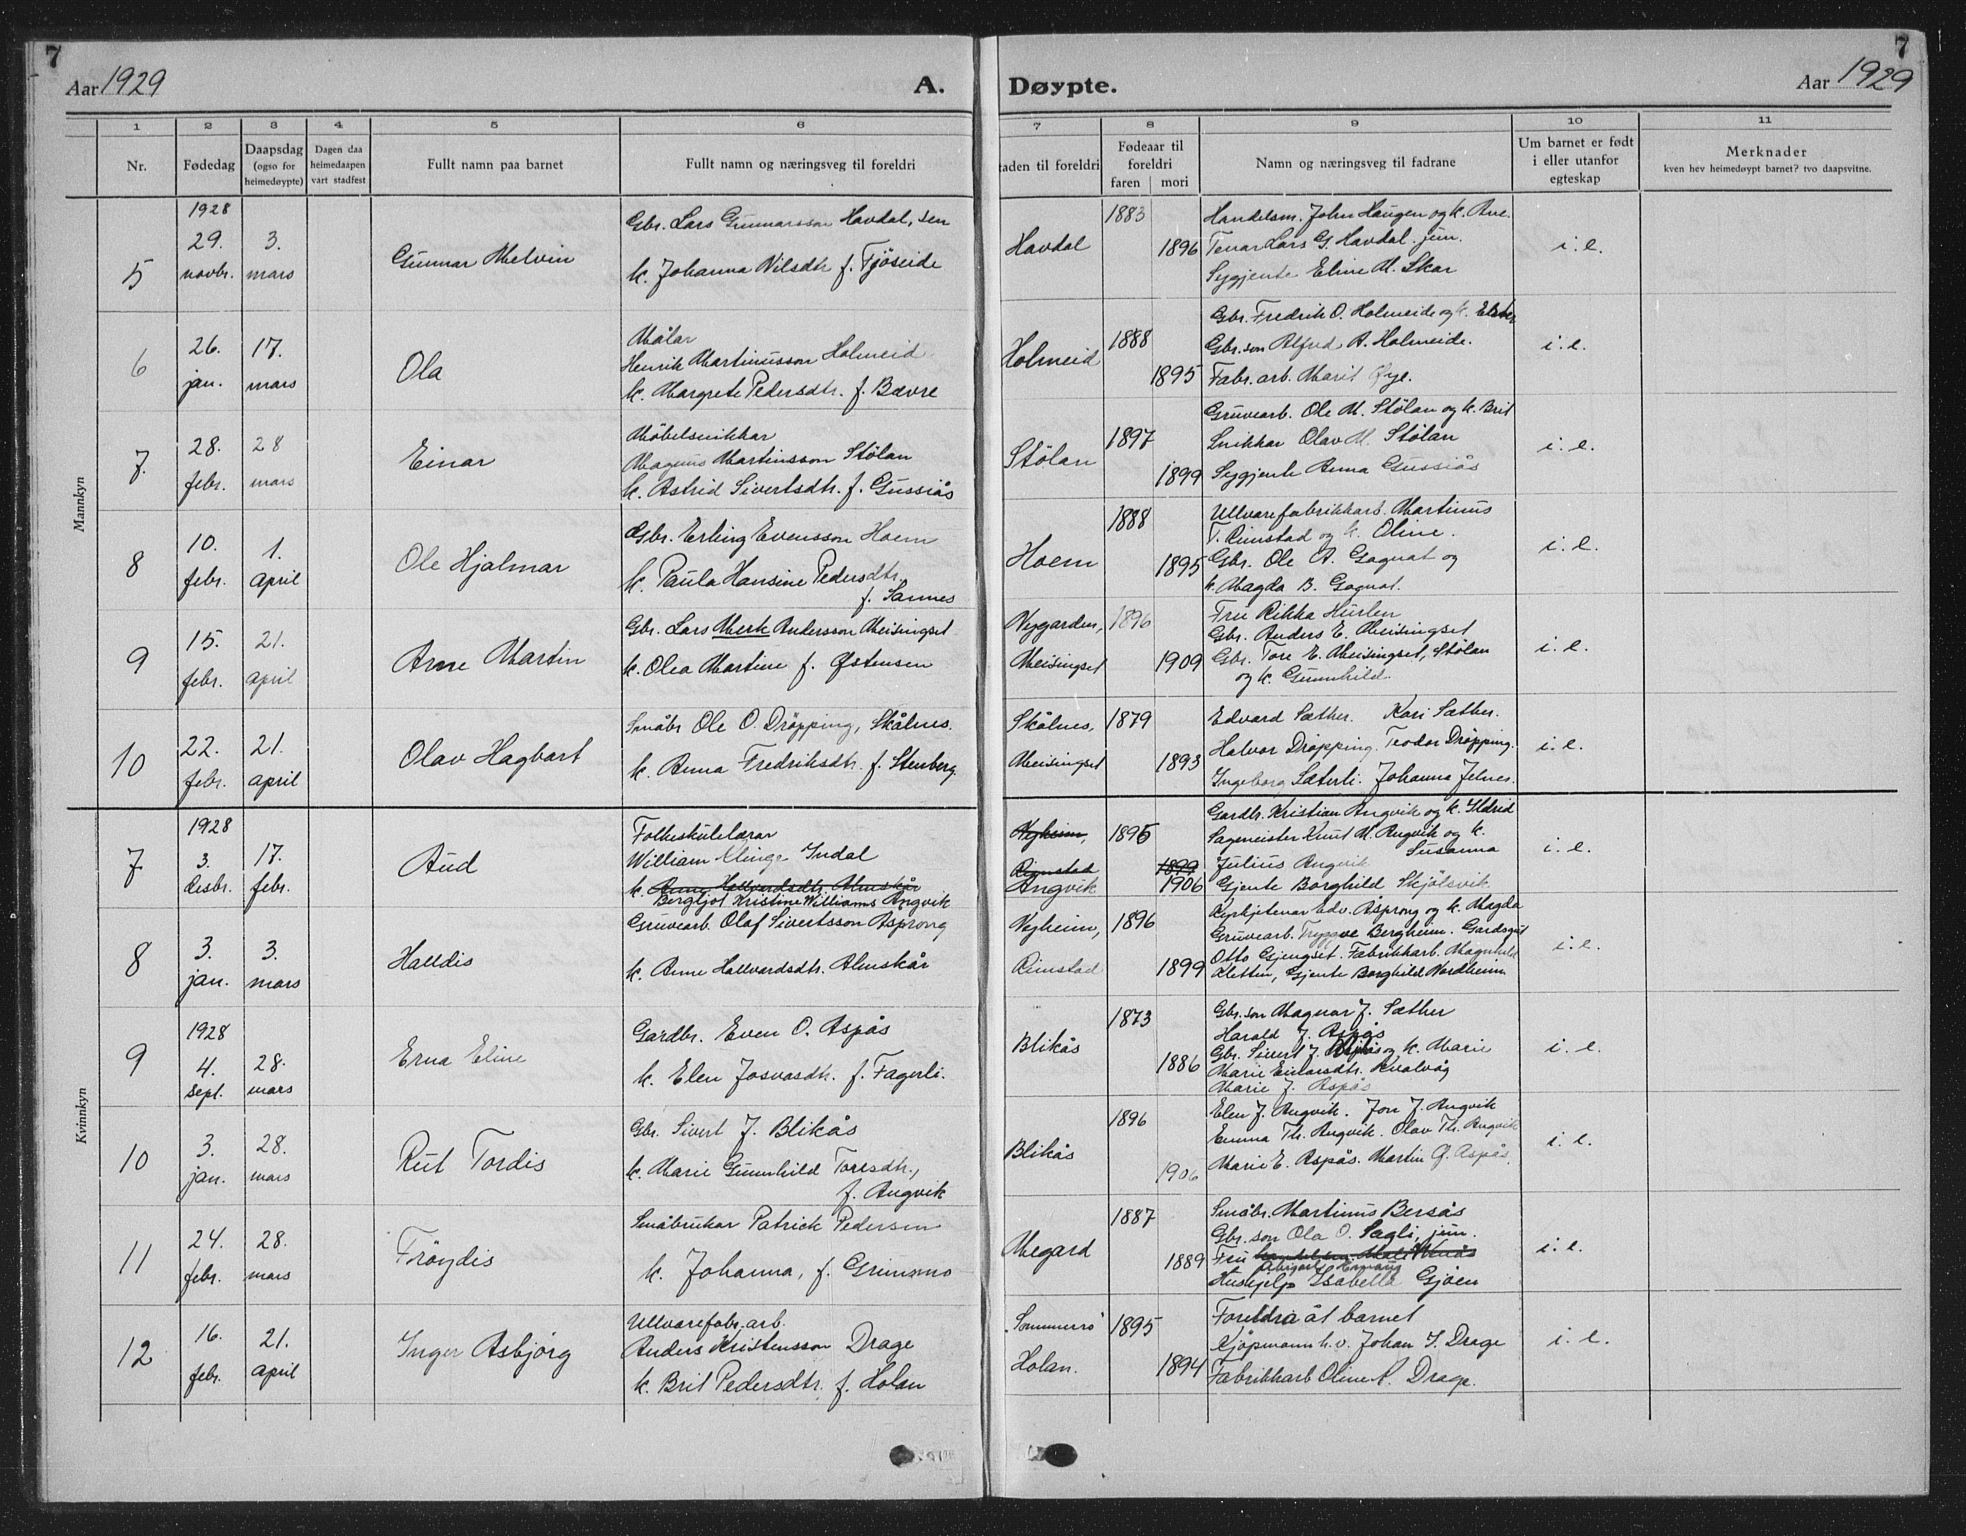 7
7
Aar 1929
A.
Døypte.
Aar 1929
1 2 3 4 5 6 7 8 9 10 11
Nr.
Fødedag
Daapsdag
(ogso for
heimedøypte)
Dagen daa
heimedaapen
vart stadfest
Fullt namn paa barnet
Fullt namn og næringsveg til foreldri
taden til foreldri
Fødeaar til
foreldri
faren mori
Namn og næringsveg til fadrane
Um barnet er født
i eller utanfor
egteskap
Merknader
kven hev heimedøypt barnet? tvo daapsvitne.
Mannkyn
5
1928
29.
novbr.
3.
mars
Gunnar Melvin
Gbr. Lars Gunnarsson Havdal, sen
k. Johanna Nilsdtr. f. Fjöseide
Havdal
1883
1896
Handelsm. John Haugen og k. Ane.
Tenar Lars G. Havdal. jun.
Sygjente Eline M. Skar
i. e.
6
26.
jan.
17.
mars
Ola
Målar
Henrik Martinusson Holmeid
k. Margrete Pedersdtr. f. Bævre
Holmeid
1888
1895
Gbr. Fredrik O. Holmeide og k.
Gbr. son Alfred A. Holmeide.
Fabr. arb. Marit Øye.
i. e.
7.
28.
febr.
28
mars
Einar
Möbelsnikkar
Magnus Martinsson Stölan
k. Astrid Sivertsdtr. f. Gussiås
Stölan
1897
1899
Gruvearb. Ole M. Stölan og k. Brit
Snikkar Olav M. Stölan
Sygjente Anna Gussiås
i. e.
8
10.
febr.
1.
april
Ole Hjalmar
Gbr. Erling Evensson Hoem
k. Paula Hansine Pedersdtr.
f. Sannes
Hoem
1888
1895
Ullvarefabrikkarb. Martinus
T. Rimstad og k. Oline.
Gbr. Ole A. Gagnat og
k. Magda B. Gagnat.
i. e.
9
15.
febr.
21.
april
Arne Martin
Gbr. Lars Merk Andersson Meisingset
k. Olea Martine f. Østensen
Nygarden,
Meisingset
1896
1909
Fru Rikka Hurlen
Gbr. Anders E. Meisingset
Gbr. Tore E. Meisingset, Stölan
og k. Gunnhild.
i. e.
10
22.
febr.
21.
april
Olav Hagbart
Småbr Ole O. Dröpping, Skålnes.
k. Anna Fredriksdtr. f. Stenberg.
Skålnes,
Meisingset
1879
1893
Edvard Sæther. Kari Sæther.
Halvor Dröpping. Teodor Dröpping.
Ingeborg Sæterli. Johanna Jelnes.
i. e.
Kvinnkyn
7
1928
3.
desbr.
17.
febr.
Aud
Folkeskulelærar
William Klinge Indal
k. Anne Hallvardsdtr. Almskår
Bergljot Kristine Williams Angvik
Nyheim,
Rimstad
Angvik
1895
1899
1906
Gardbr. Kristian Angvik og k. Ildrid
Sagmeister Knut M. Angvik og k.
Susanna
Julius Angvik
Gjente Borghild Skjölsvik
i. e.
8
3.
jan.
3.
mars
Halldis
Gruvearb. Olaf Sivertsson Asprong
k. Anne Hallvardsdtr. Almskår
Nyheim,
Rimstad
1896
1899
Edv. Asprong og k. Magda
Gruvearb. Tryggve Bergheim. Gardsgut
Otto Gjengset. Fabrikkarb. Magnhild
Kletten, Gjente Borghild Nordheim
i. e.
9
1928
4.
sept.
28.
mars
Erna Eline
Gardbr. Even O. Aspås
k. Elen Josvasdtr. f. Fagerli.
Blikås
1873
1886
Gbr. son Magnar J. Sæther
Harald J. Aspås
Gbr. Sivert J. Blikås og k. Marie
Marie Einarsdtr. Kvalvåg
Marie J. Aspås
i. e.
10
3.
jan.
28.
mars
Rut Tordis
Gbr. Sivert J. Blikås
k. Marie Gunnhild Toresdtr.,
f. Angvik
Blikås
1896
1906
Elen J. Angvik. Jon J. Angvik
Emma Th. Angvik. Olav Th. Angvik
Marie E. Aspås. Martin G. Aspås.
i. e.
11
24.
febr.
28.
mars
Fröydis
Småbrukar Patrick Pedersen
k. Johanna, f. Grimsmo
Megard
1887
1889
Småbr. Martinus Bersås
Gbr. son Ola O. Sagli, jun.
Fru
Hushjelp Isabella Gjöen
i. e.
12
16.
febr.
21.
april
Inger Asbjörg
Ullvarefabr. arb.
Anders Kristensson Drage
k. Brit Pedersdtr. f. Holan
"Sommerro"
Holan.
1895
1894
Foreldra åt barnet
Kjöpmann h. v. Johan I. Drage
Fabrikkarb Oline A. Drage.
i. e.